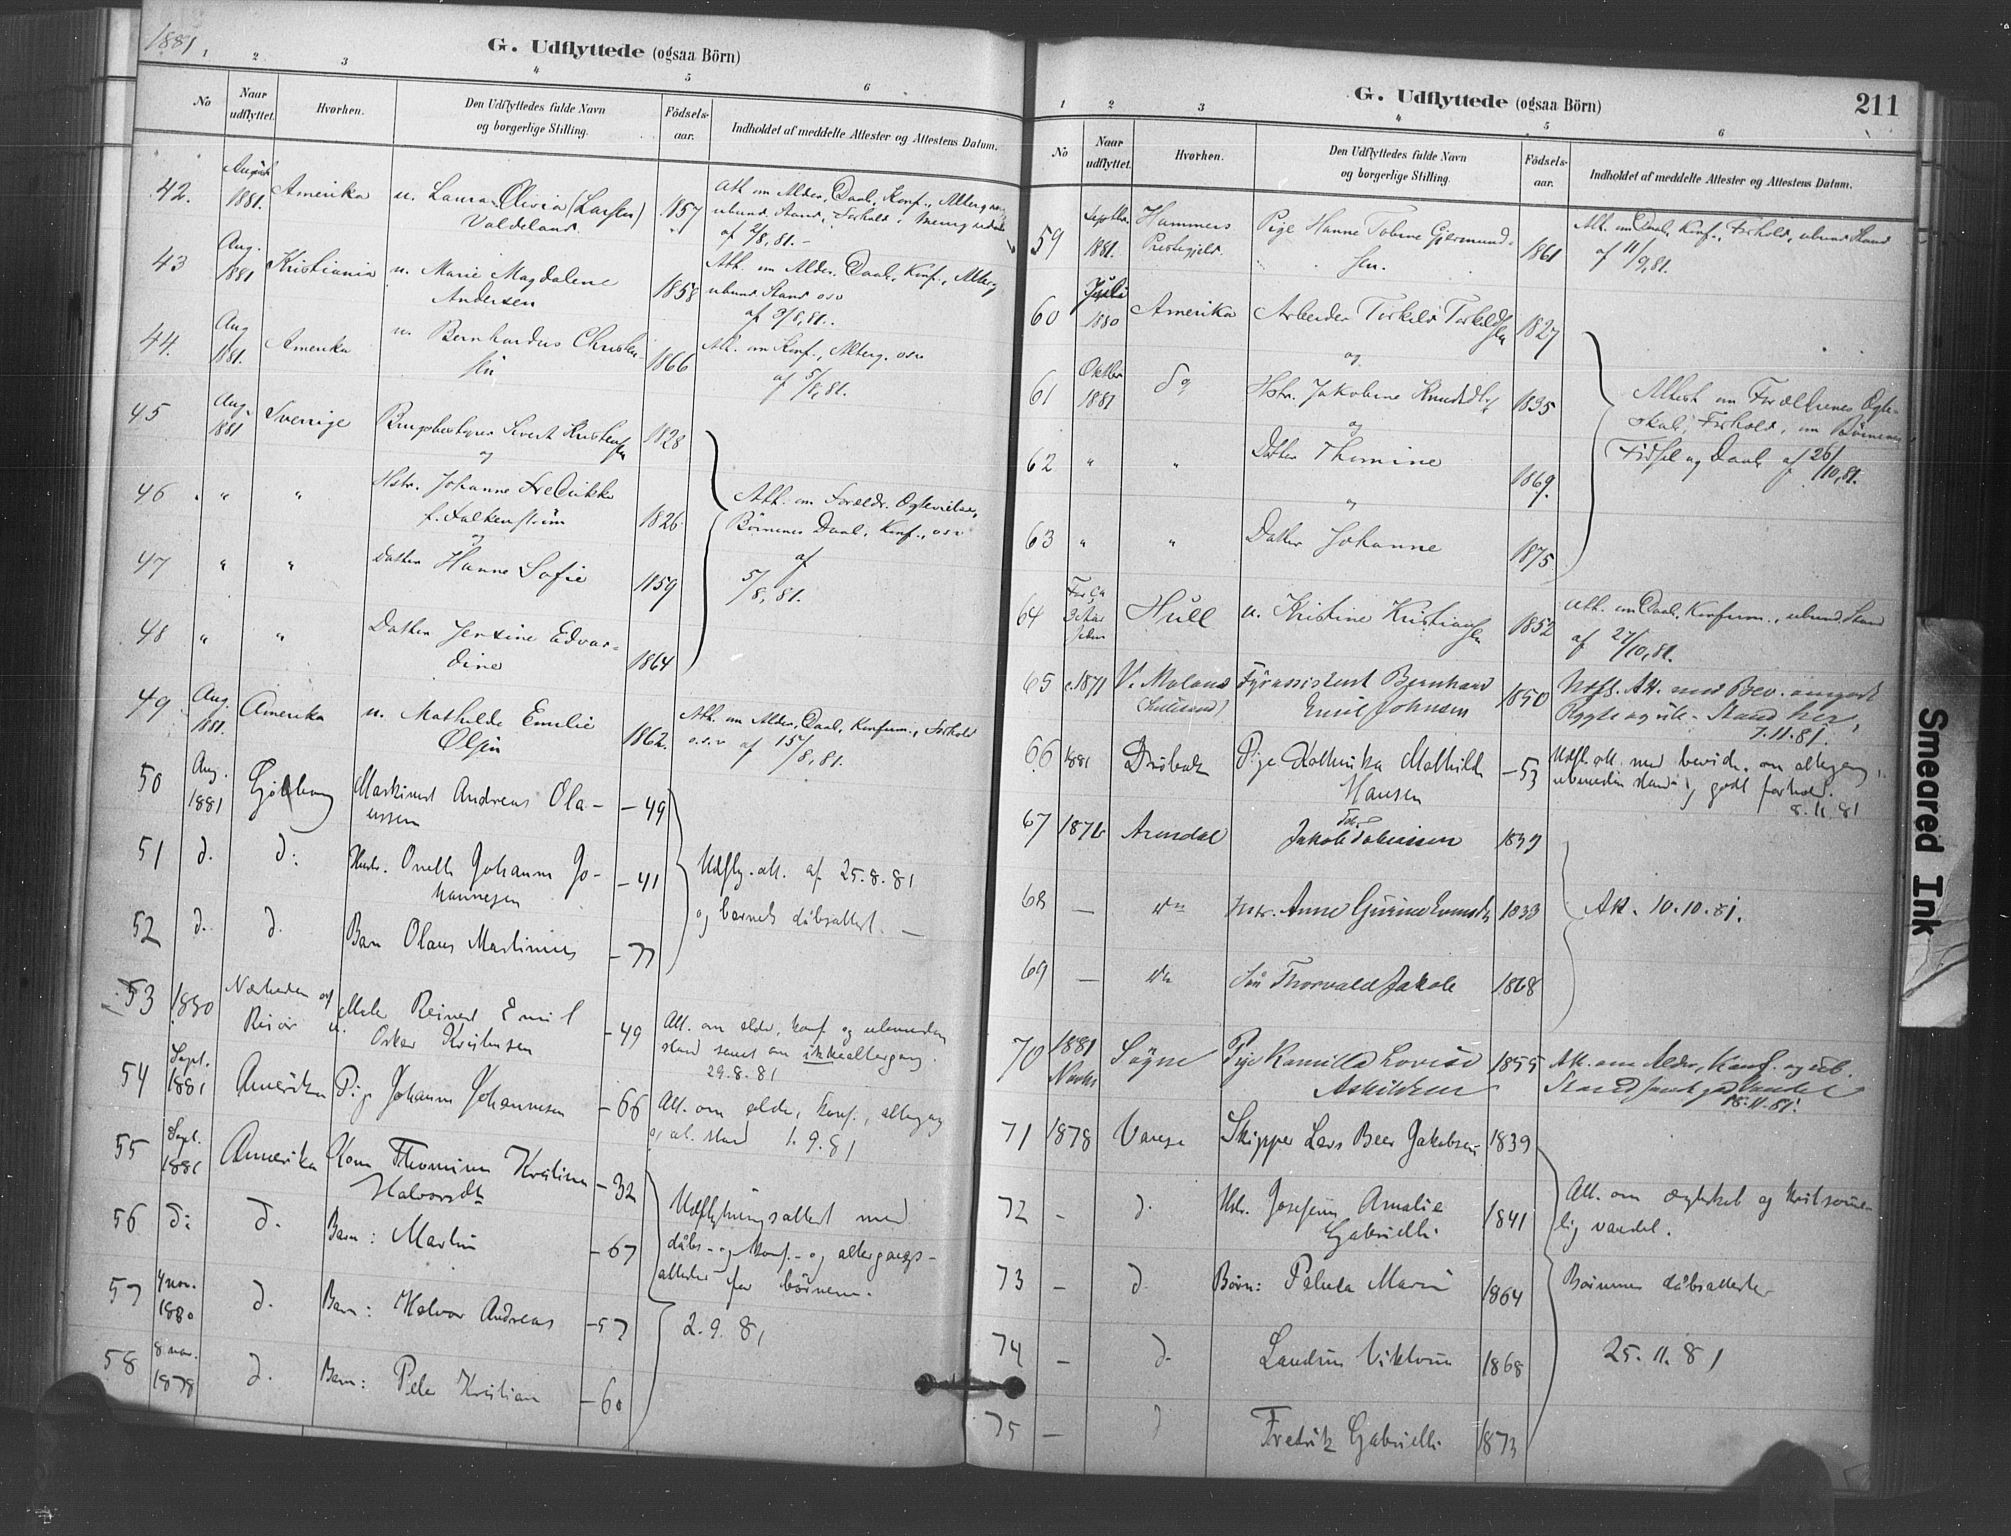 1881.
G. Udflyttede (ogsaa Börn)
1 2 3 4 5 6
No
Naar udflyttet.
Hvorhen.
Den Udflyttedes fulde Navn og borgerlige Stilling.
Födselsaar.
Indholdet af meddelte Attester og Attestens Datum.
42. August 1881. Amerika u. Laura Olivia (Larsen) 1857 Att. om Alder, Daab, Konf., Alterg.
Valdeland ubund. Stand, Forhold
af 2/8, 81.
43 Aug. 1881 Kristiania u. Marie Magdalene 1858 Att. om Alder, Daab, Konf., Alterg
Andersen ubund. Stand osv
af 3/8, 81.
44. Aug 1881. Amerika u. Bernhardus Christen- 1866 Att. om Konf., Alterg. osv
sen af 5/8, 81.
45 Aug. 1881 Sverrige Sivert Kristensen 1828
og
46 " " Hstr. Johanne Fredrikke Att. om Forældr. Ægtevielse,
f. Falkenström 1826 Börnenes Daab, Konf., osv
og af
47 " " Datter Hanne Sofie 1859 5/8, 81.
48 " " Datter Jensine Edvar-
dine 1864
49 Aug. 1881. Amerika u. Mathilde Emilie 1862. Att. om Alder, Daab, Konfirm., Forhold
Olsen o.s.v af 15/8, 81.
50 Aug. 1881 Göteborg Maskinist Andreas Ola- - 49
ussen
51 d. d: Hustr. Johanne Jo- - 41 Udfly. att. af 25.8.81
hannesen og barnets dåbsattest.
52 d. d. Barn Olaus Martinius - 77
53 1880 Nærheden af Reinert Emil - 49 Att. om alder, konf. og ubunden
Risør Oskar Kristensen stand samt om ikke altergang.
29.8.81
54 Sept. 1881 Amerika Pige Johanne Johannesen - 66 Att. om alder, konf., altergang
og ub. stand 1.9.81
55 Sept. 1881 Amerika Kone Thomine Kristine - 32
Halvorsdtr Udflytningsattest med
56 d: d. Barn: Martin - 67 dåbs- og konf.- og altergangs-
attester for börnene.
57 4 nov. 1880 d. Barn: Halvor Andreas - 57 2.9.81
58 8 nov. 1878 d. Barn: Peder Kristian - 60
G. Udflyttede (ogsaa Börn) 211
1 2 3 4 5 6
No
Naar udflyttet.
Hvorhen.
Den Udflyttedes fulde Navn og borgerlige Stilling.
Födselsaar.
Indholdet af meddelte Attester og Attestens Datum.
59 Septbr. 1881. Hammers Pige Hanne Tobine Gjermund- 1861 Att. om Daab, Konf., Forhold, ubund. Stand
Præstegjeld. sen. af 11/9, 81.
60 Juli 1880 Amerika Arbeider Torkild Torkildsen 1827
og
61 Oktbr 1881 do Hstr. Jakobine Knudsdtr 1835 Attest om Forældrenes Ægte-
og skab, Forhold, om Börnenes
62 " " Datter Thomine 1869. Födsel og Daab af 26/10, 81.
"
63 " " Datter Johanne 1875
64 For ca 3 Aar siden Hull u. Kristine Kristiansen 1852 Att. om Daab, Konfirm., ubund. Stand
af 27/10, 81.
65 c. 1871 V. Moland Fyrassistent Bernhard 1850
Emil Johnsen 7.11.81.
66 1881 Dröbak Pige Kathrika Mathilde - 53 Udfl. att. med bevidn. om altergang,
Hansen ubunden stand og godt forhold.
8.11.81
67 1876 Arendal Jakob Tobiassen 1839
68 — do Hstr. Anne Gurine 1833 Att. 10.10.81.
69 — do Sön Thorvald Jakob 1868
70 1881 Novbr Søgne Pige Kamilla Lovise 1855 Att. om Alder, Konf. og ub.
Askildsen Stand samt god Vandel
18.11.81.
71 1878 Vanse Skipper Lars Beer Jakobsen 1839
Att. om ægteskab og kristsöme-
72 - d. Hstr. Josefine Amalie 1841 lig vandel.
Gabrielle
73 - d. Börn: Petrea Marie 1864 Börnenes dåbsattester
74 - d. Laurine Viktoria 1868 25.11.81
75 - d Fredrik Gabriel 1873
Smeared Ink